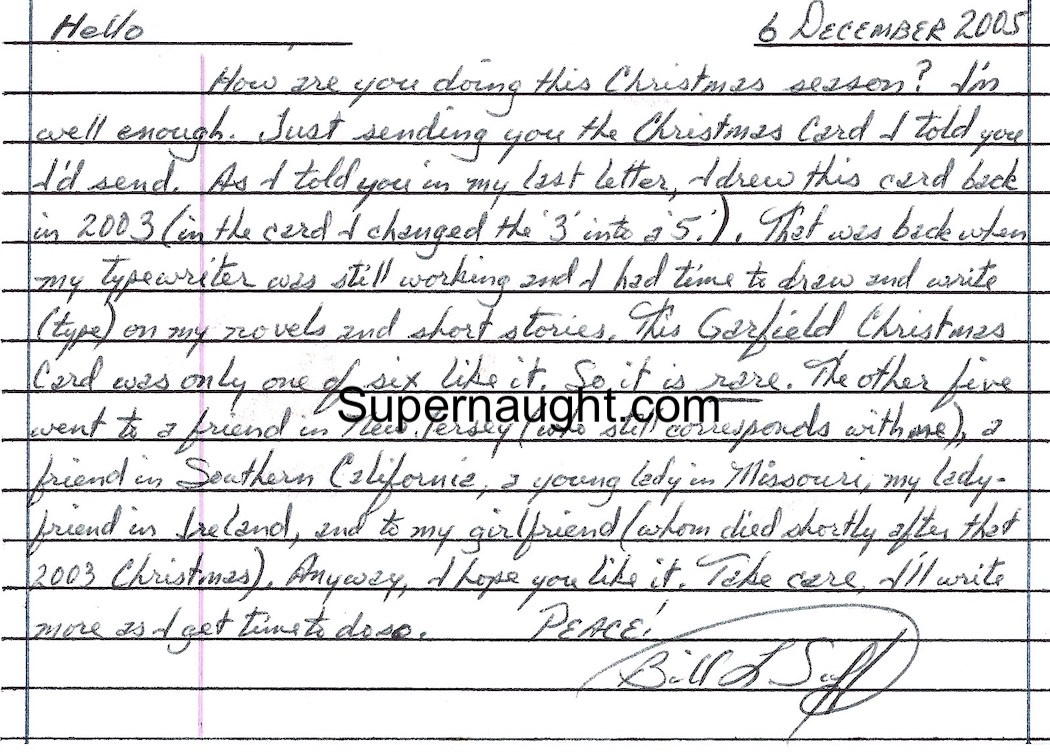 Hello , 6 DECEMBER 2005
How are you doing this Christmas season? I'm
well enough. Just sending you the Christmas Card I told you
I'd send. As I told you in my last letter, I drew this card back
in 2003 (in the card I changed the '3' into a '5'.). That was back when
my typewriter was still working and I had time to draw and write
(type) on my novels and short stories. This Garfield Christmas
Card was only one of six like it. So it is rare. The other five
Supernaught.com
went to a friend in New Jersey (who still corresponds with me), a
friend in Southern California, a young lady in Missouri, my lady-
friend in Ireland, and to my girlfriend (whom died shortly after that
2003 Christmas). Anyway, I hope you like it. Take care, I'll write
more as I get time to do so. PEACE!
Bill L Suff